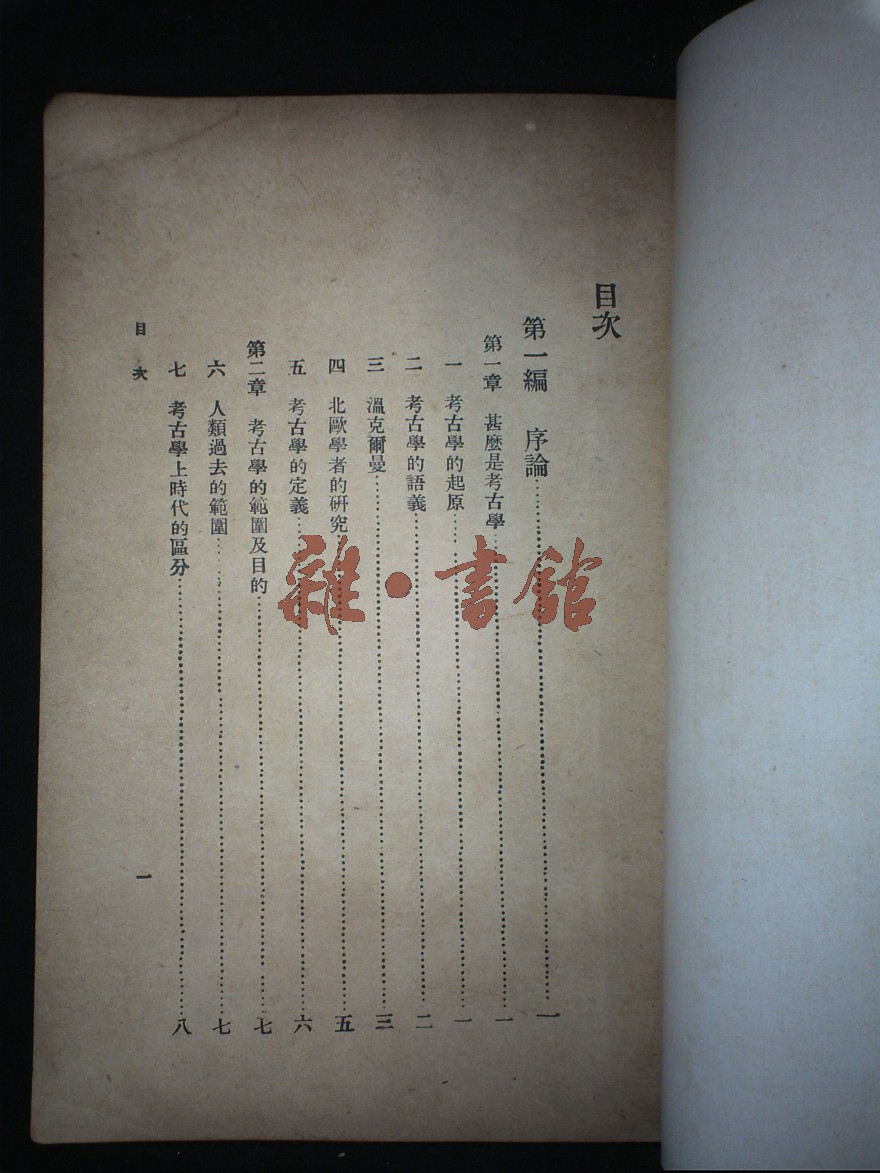 目次
第一編　序論……一
第一章　甚麼是考古學……一
一　考古學的起原……一
二　考古學的語義……二
三　溫克爾曼……三
四　北歐學者的研究……五
五　考古學的定義……六
第二章　考古學的範圍及目的……七
六　人類過去的範圍……七
七　考古學上時代的區分……八
目次
一
雜・書館